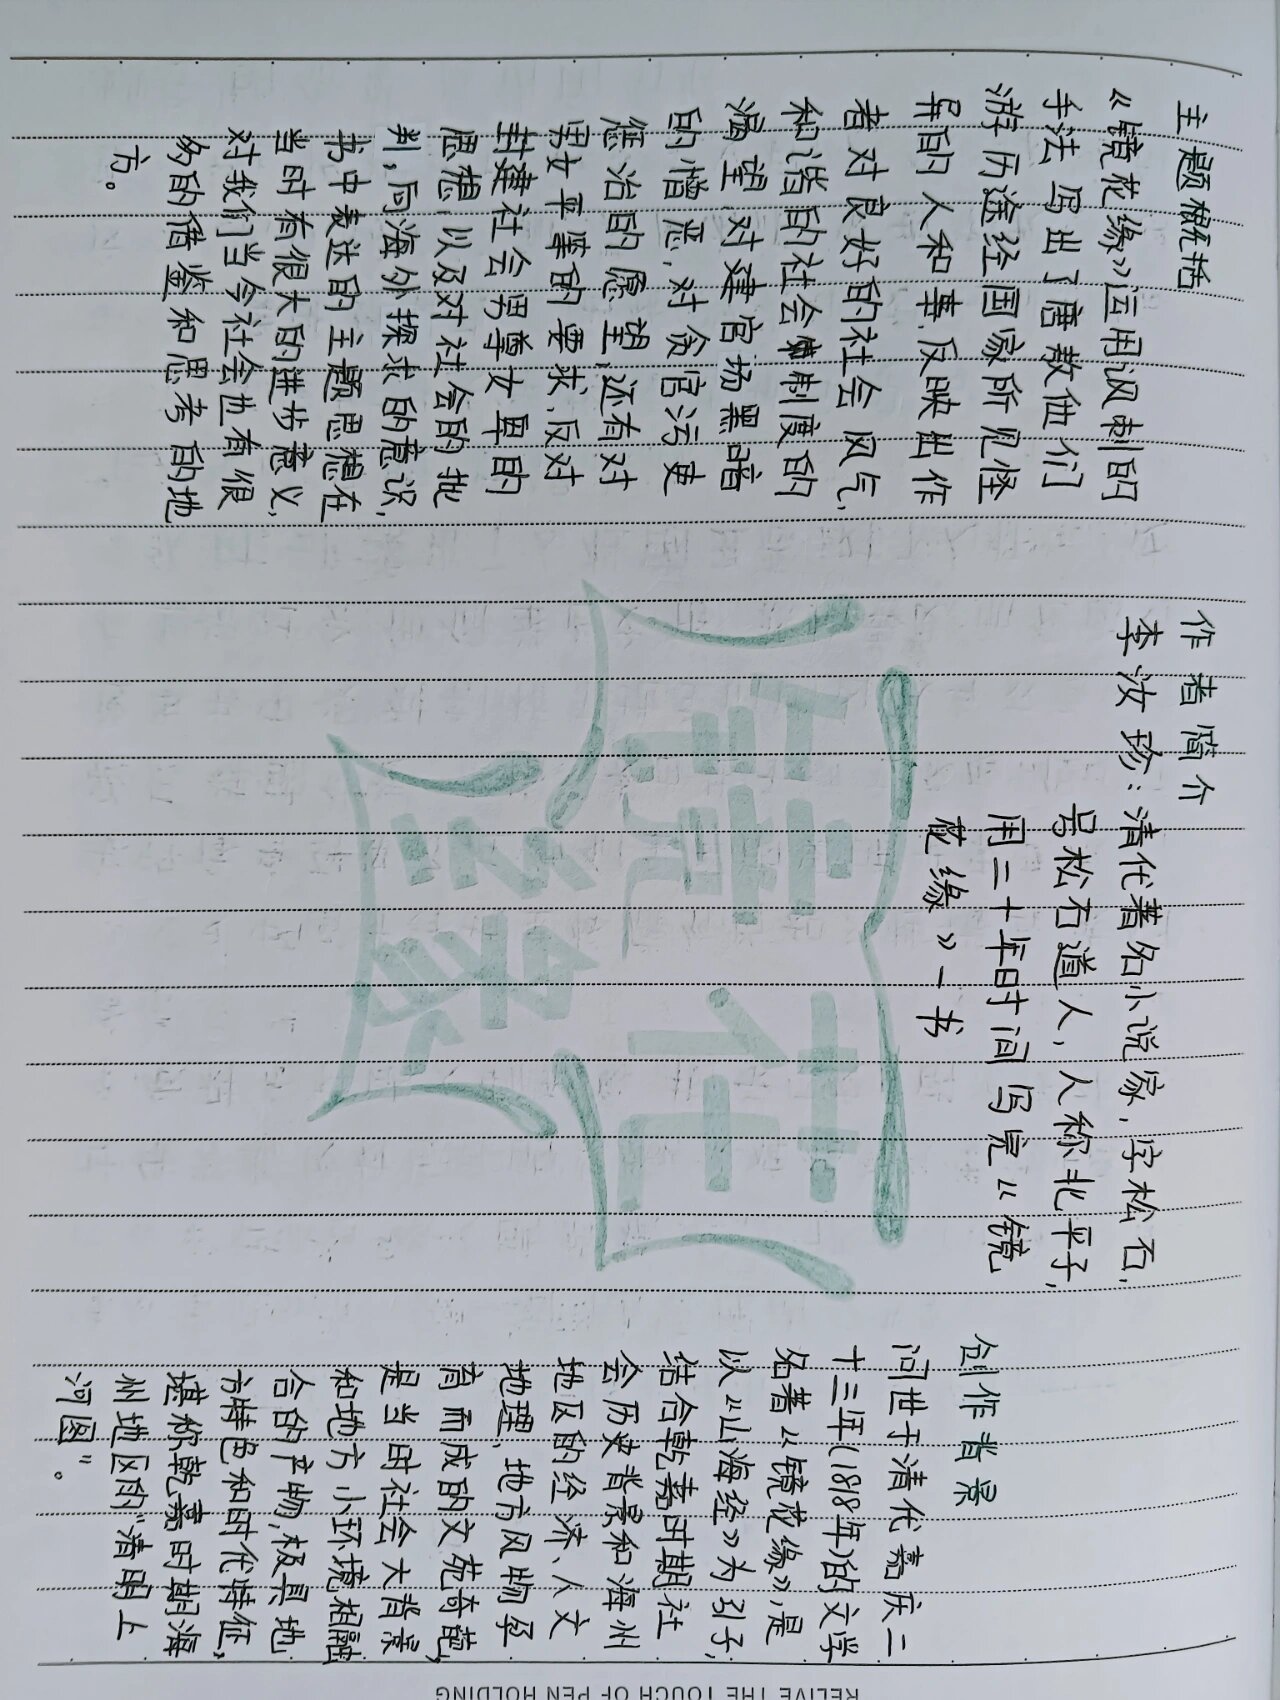 主题概括
《镜花缘》运用讽刺的
手法写出了唐敖他们
游历途经国家所见怪
异的人和事、反映出作
者对良好的社会风气,
和谐的社会制度的
渴望,对建官场黑暗
的憎恶,对贪官污吏
惩治的愿望,还有对
男女平等的要求、反对
封建社会男尊女卑的
思想,以及对社会的批
判,向海外探求的意识,
书中表达的主题思想在
当时有很大的进步意义,
对我们当今社会也有很
多的借鉴和思考的地
方。
作者简介
李汝珍:清代著名小说家,字松石,
号松石道人,人称北平子,
用二十年时间写完《镜
花缘》一书
镜花缘
创作背景
问世于清代嘉庆二
十三年(1818年)的文学
名著《镜花缘》,是
以《山海经》为引子,
结合乾嘉时期社
会历史背景和海州
地区的经济、人文
地理,地方风物孕
育而成的文苑奇葩,
是当时社会大背景
和地方小环境相融
合的产物,极具地
方特色和时代特征,
堪称乾嘉时期海
州地区的"清明上
河图"。
RELIVE THE TOUCH OF PEN HOLDING